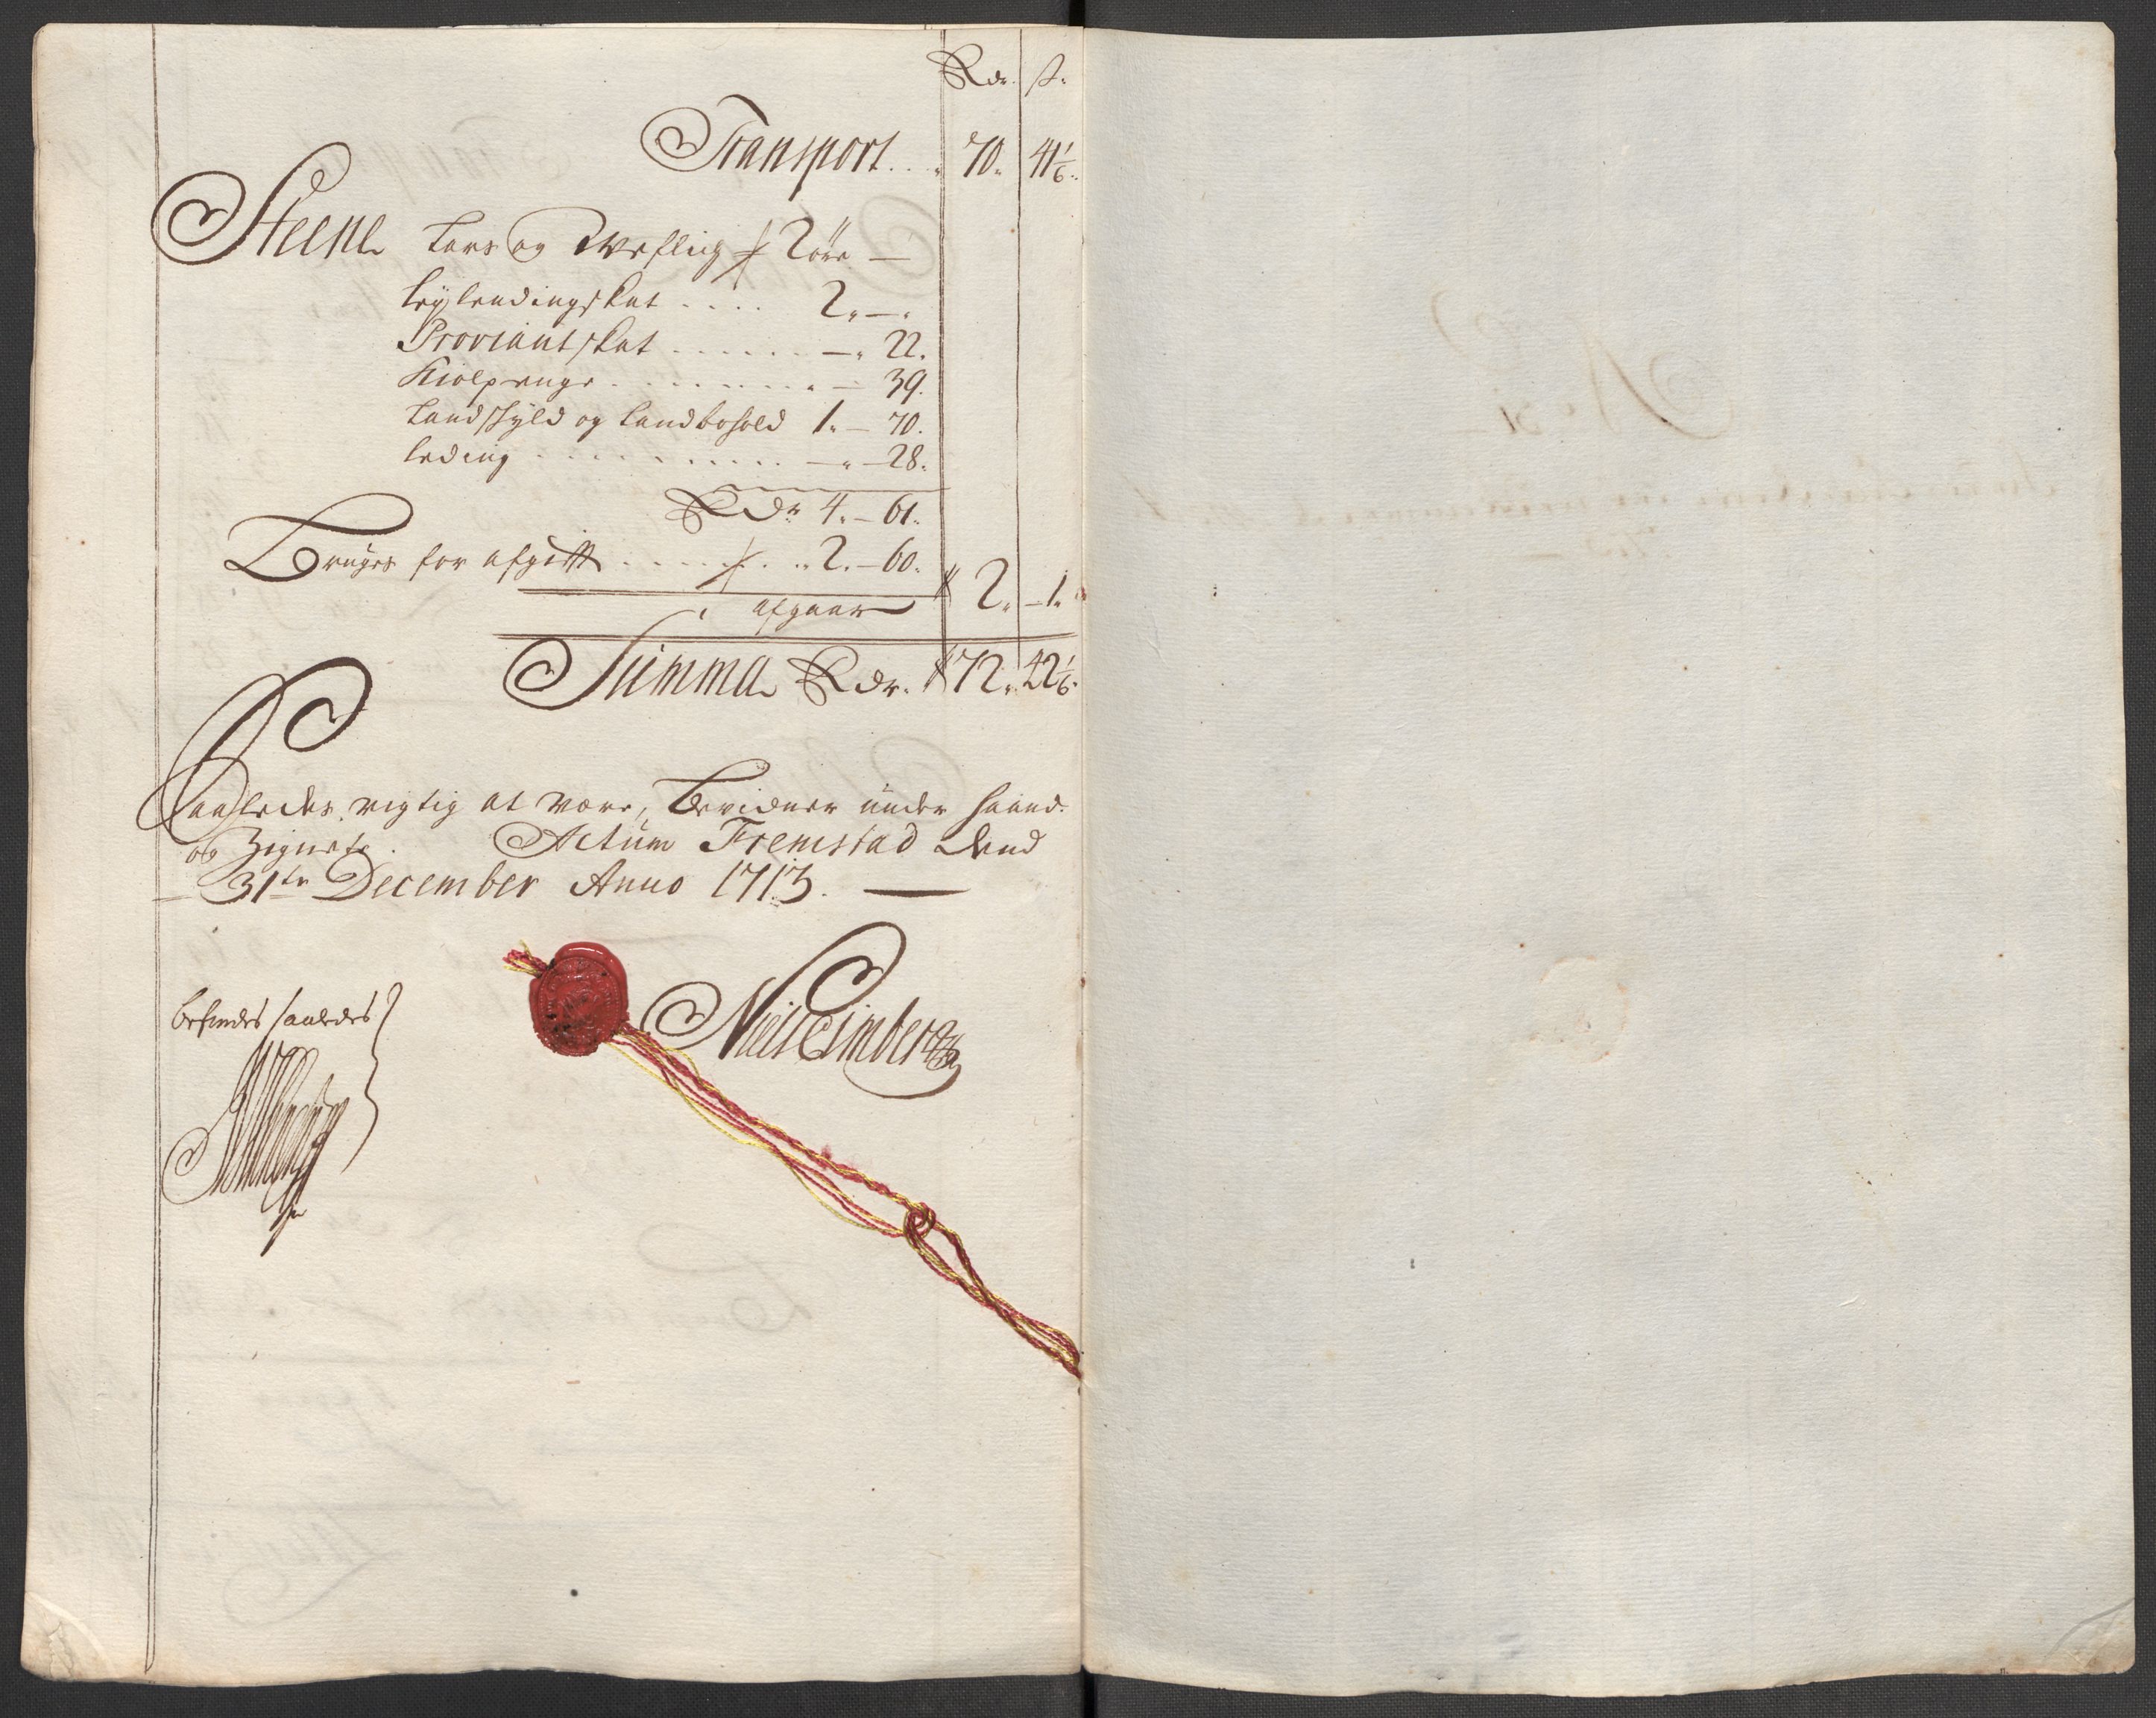 Rdr. ß.
Transport . . . 70. 41 1/6.
Steene Lars og 2öre —
Leylendingskat . . . . 2. — .
Proviantskat . . . . . . — . 22.
Kiolpenge . . . . . . . . — 39.
Landskyld og Landbohold 1. — 70.
Leding . . . . . . . . . . — . — 28.
Rdr 4. — 61.
Bruges for afgift . . . . . . . 2. — 60.
afgaar 2. — 1.
Summa Rdr. 72. 42 1/6.
Saaledes rigtig at være, Bevidner under haand
og Zignete. Actum Fremstad Dend
31te December Anno 1713. —
befindes saaledes
Niels Eimberg
No